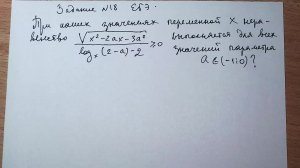 Задание №18 ЕГЭ.
При каких значениях переменной x нера-
венство √(x² - 2ax - 3a²) / (logₓ(2-a) - 2) ≥ 0 выполняется для всех
значений параметра
a ∈ (-1;0)?